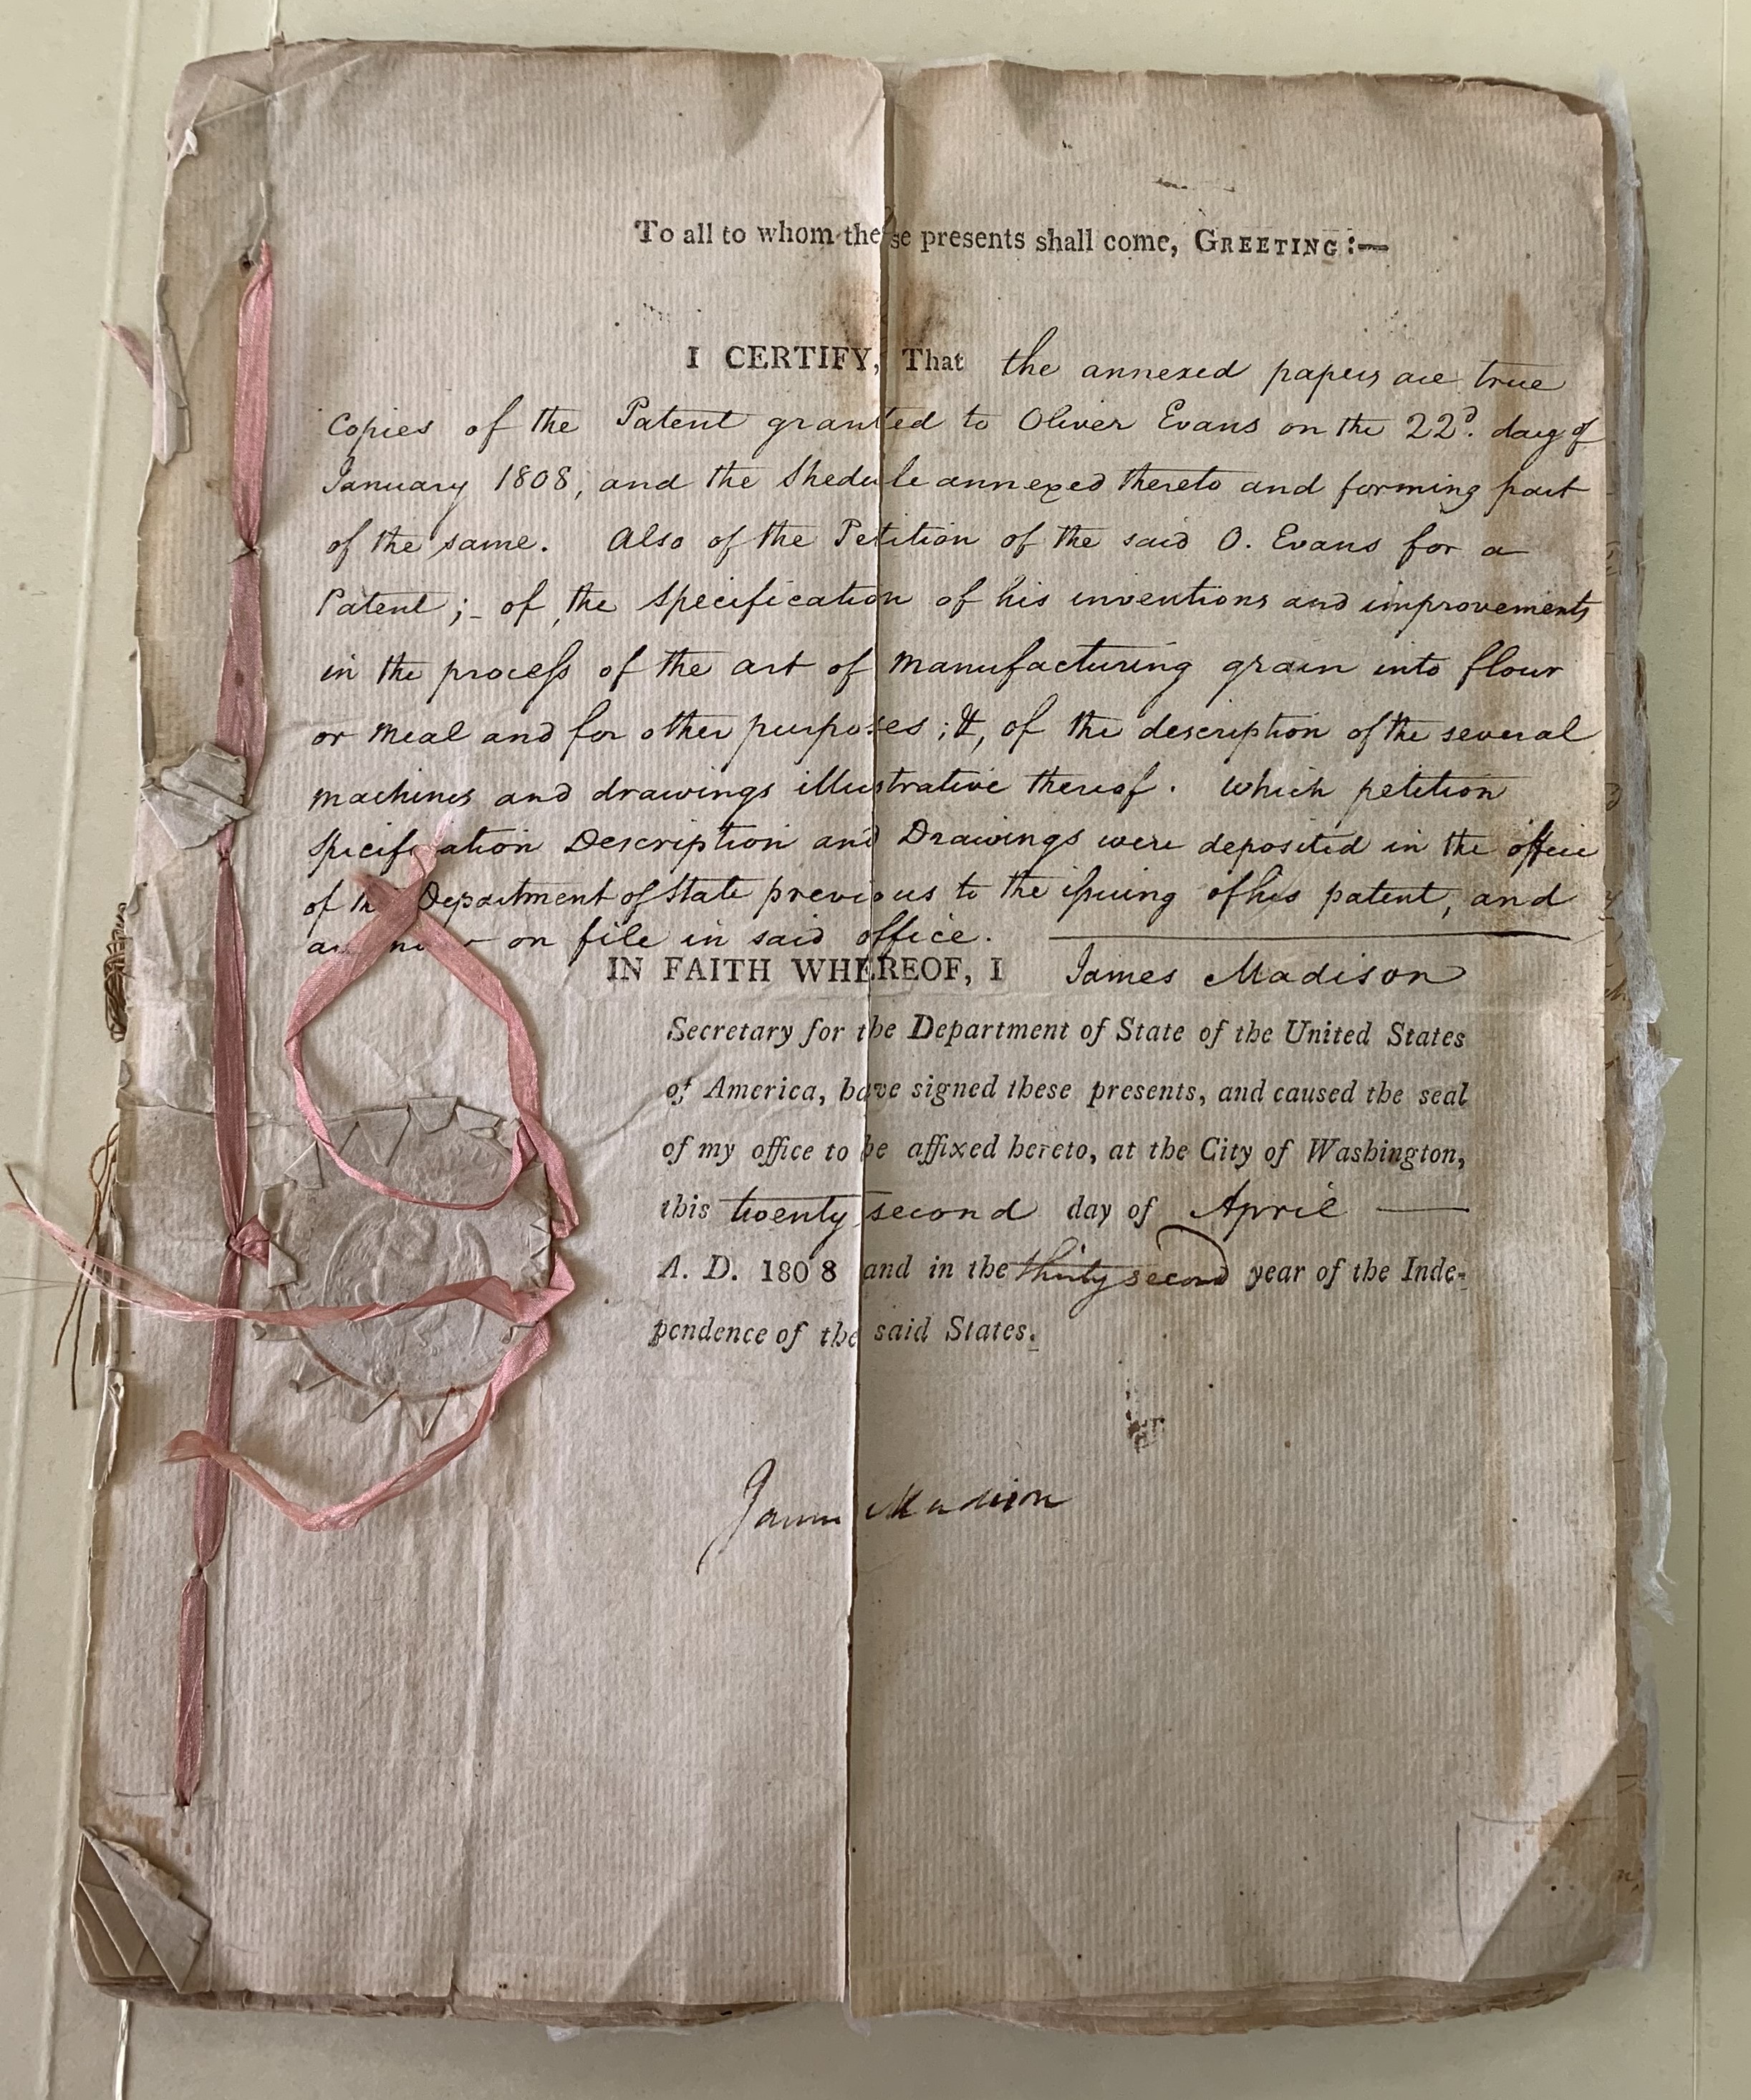 To all to whom these presents shall come, GREETING:—
I CERTIFY, That the annexed papers are true
Copies of the Patent granted to Oliver Evans on the 22d. day of
January 1808, and the Shedule annexed thereto and forming part
of the same. Also of the Petition of the said O. Evans for a
Patent;- of, the Specification of his inventions and improvements
in the process of the art of manufacturing grain into flour
or meal and for other purposes; &, of the description of the several
machines and drawings illustrative thereof. Which petition
Specification Description and Drawings were deposited in the office
of the Department of State previous to the issuing of his patent, and
on file in said office.
IN FAITH WHEREOF, I James Madison
Secretary for the Department of State of the United States
of America, have signed these presents, and caused the seal
of my office to be affixed hereto, at the City of Washington,
this twenty second day of April
A. D. 1808 and in the thirty second year of the Inde-
pendence of the said States.
James Madison